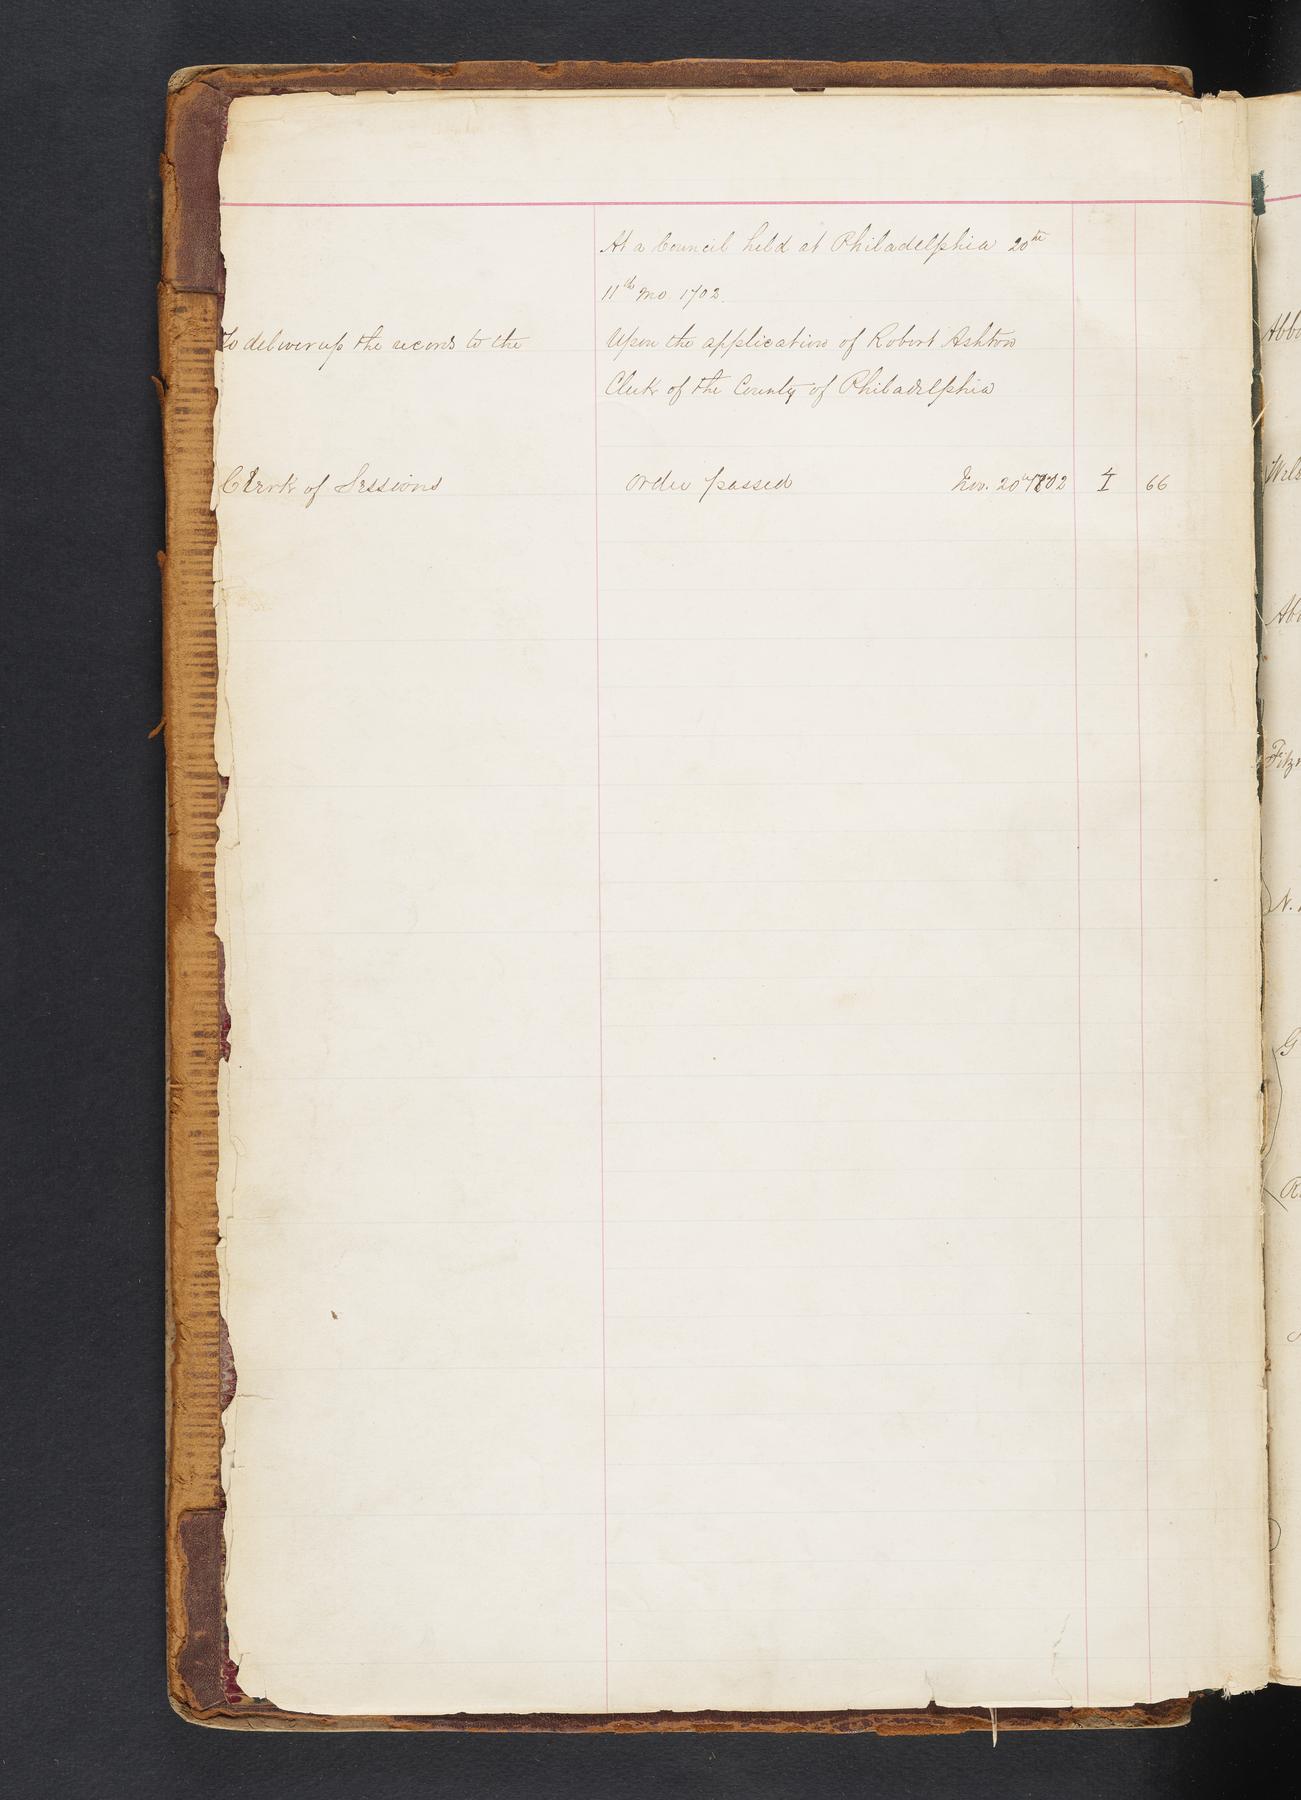 At a Council held at Philadelphia 20th
11th mo. 1702.
To deliver up the records to the
Upon the application of Robert Ashton
Clerk of the County of Philadelphia
Clerk of Sessions
order passed
Nov. 20th 1702
I
66
Abbo
Wils
Abb
Fitz
N.
G
R